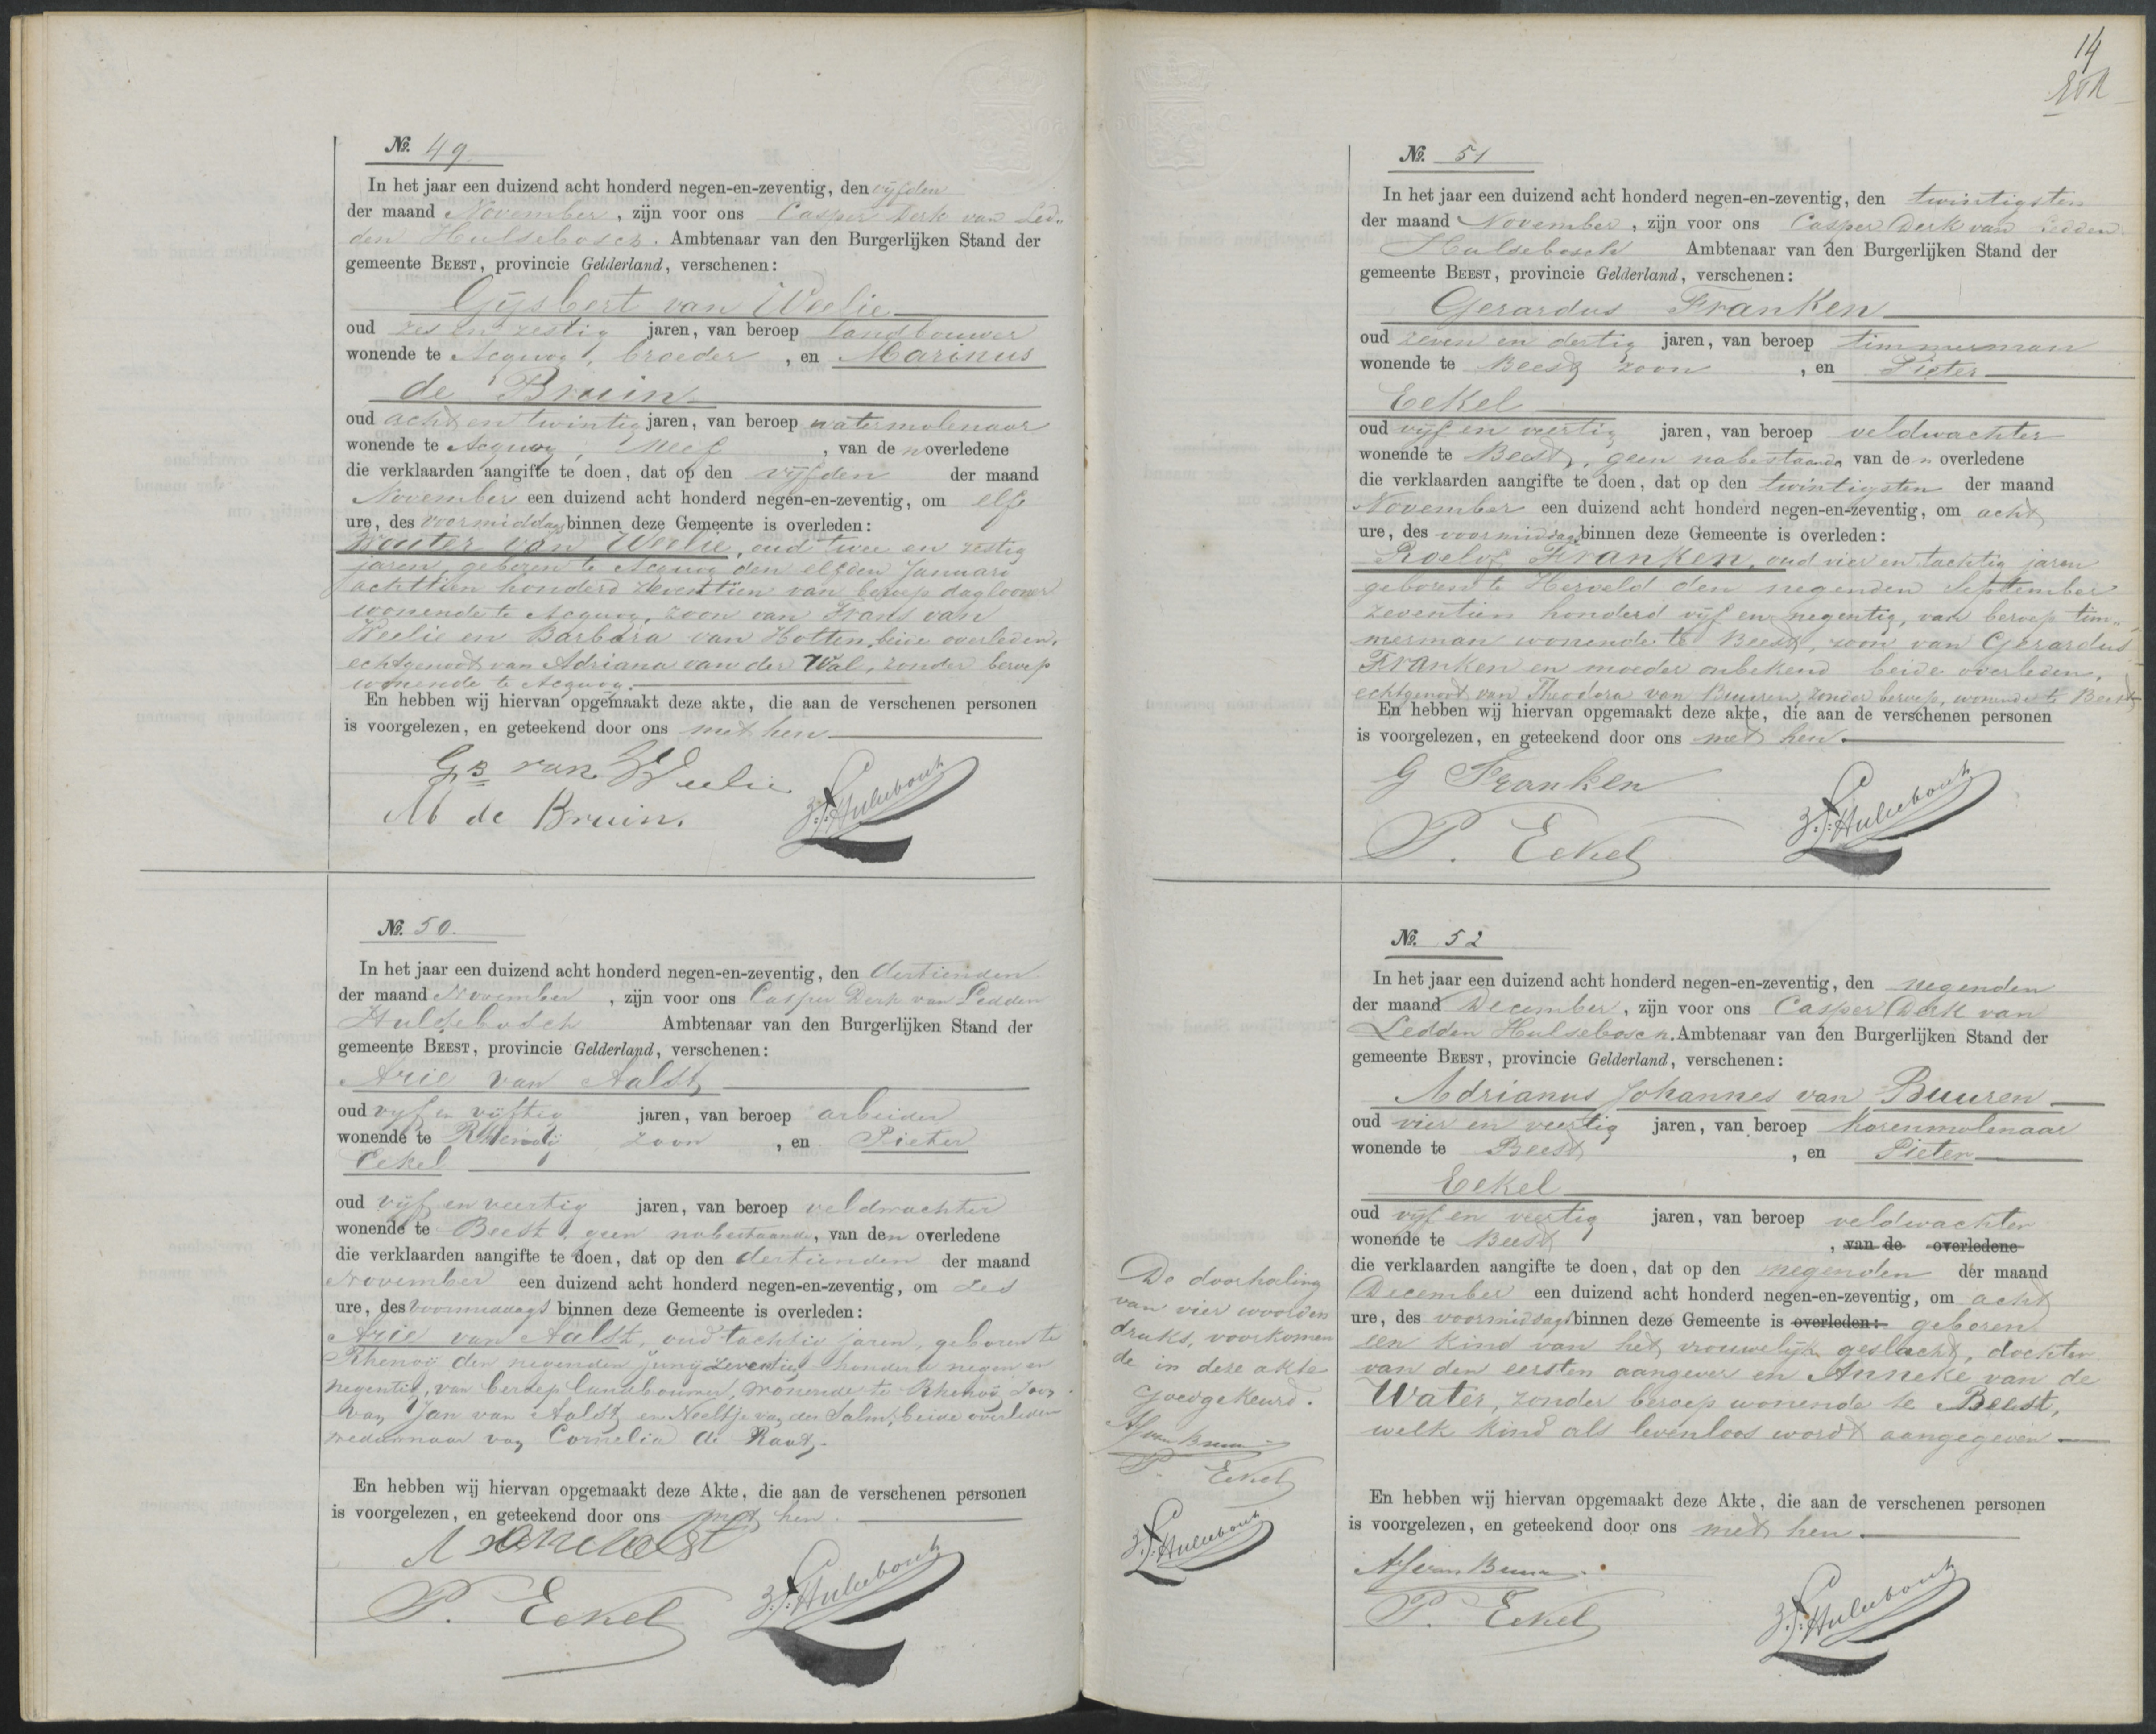 №. 49
In het jaar een duizend acht honderd negen-en-zeventig, den vijfden
der maand November, zijn voor ons Casper Derk van Led„
den Hulsebosch. Ambtenaar van den Burgerlijken Stand der
gemeente BEEST, provincie Gelderland, verschenen:
Gijsbert van Weelie
oud zes en zestig jaren, van beroep landbouwer
wonende te Acquoy, broeder, en Marinus
de Bruin
oud acht en twintig jaren, van beroep watermolenaar
wonende te Acquoy, neef, van den overledene
die verklaarden aangifte te doen, dat op den vijfden der maand
November een duizend acht honderd negen-en-zeventig, om elf
ure, des voormiddags binnen deze Gemeente is overleden:
Wouter van Weelie, oud twee en zestig
jaren, geboren te Acquoy den elfden Januari
achttien honderd zeventien van beroep daglooner
wonende te Acquoy, zoon van Frans van
Weelie en Barbara van Hotten, beide overleden,
echtgenoot van Adriana van der Wal, zonder beroep
wonende te Acquoy.
En hebben wij hiervan opgemaakt deze akte, die aan de verschenen personen
is voorgelezen, en geteekend door ons met hen
Gs van Weelie
M de Bruin.
№. 50.
In het jaar een duizend acht honderd negen-en-zeventig, den dertienden
der maand November, zijn voor ons Casper Derk van Ledden
Hulsebosch Ambtenaar van den Burgerlijken Stand der
gemeente BEEST, provincie Gelderland, verschenen:
Arie van Aalst
oud vijf en vijftig jaren, van beroep arbeider
wonende te Rhenoij zoon, en Pieter
Eekel
oud vijf en veertig jaren, van beroep veldwachter
wonende te Beest, geen nabestaande, van den overledene
die verklaarden aangifte te doen, dat op den dertienden der maand
November een duizend acht honderd negen-en-zeventig, om zes
ure, des voormiddags binnen deze Gemeente is overleden:
Arie van Aalst, oud tachtig jaren, geboren te
Rhenoij den negenden Junij zeventien honderd negen en
negentig, van beroep landbouwer, wonende te Rhenoij, zoon
van Jan van Aalst en Neeltje van der Salm, beide overleden
weduwnaar van Cornelia de Raat.
En hebben wij hiervan opgemaakt deze Akte, die aan de verschenen personen
is voorgelezen, en geteekend door ons met hen.
A van Aalst
P. Eekel
14
№. 51
In het jaar een duizend acht honderd negen-en-zeventig, den twintigsten
der maand November, zijn voor ons Casper Derk van Ledden
Hulsebosch Ambtenaar van den Burgerlijken Stand der
gemeente BEEST, provincie Gelderland, verschenen:
Gerardus Franken
oud zeven en dertig jaren, van beroep timmerman
wonende te Beest zoon, en Pieter
Eekel
oud vijf en veertig jaren, van beroep veldwachter
wonende te Beest, geen nabestaande van den overledene
die verklaarden aangifte te doen, dat op den twintigsten der maand
November een duizend acht honderd negen-en-zeventig, om acht
ure, des voormiddags binnen deze Gemeente is overleden:
Roelof Franken, oud vier en tachtig jaren
geboren te Herveld den negenden September
zeventien honderd vijf en negentig, van beroep tim„
merman wonende te Beest, zoon van Gerardus
Franken en moeder onbekend beide overleden,
echtgenoot van Theodora van Buuren, zonder beroep, wonende te Beest
En hebben wij hiervan opgemaakt deze akte, die aan de verschenen personen
is voorgelezen, en geteekend door ons met hen.
G Franken
P. Eekel
№. 52
In het jaar een duizend acht honderd negen-en-zeventig, den negenden
der maand December, zijn voor ons Casper Derk van
Ledden Hulsebosch. Ambtenaar van den Burgerlijken Stand der
gemeente BEEST, provincie Gelderland, verschenen:
Adrianus Johannes van Buuren
oud vier en veertig jaren, van beroep korenmolenaar
wonende te Beest, en Pieter
Eekel
oud vijf en veertig jaren, van beroep veldwachter
wonende te Beest, van de overledene
die verklaarden aangifte te doen, dat op den negenden der maand
December een duizend acht honderd negen-en-zeventig, om acht
ure, des voormiddags binnen deze Gemeente is overleden: geboren
een kind van het vrouwelijk geslacht, dochter
van den eersten aangever en Anneke van de
Water, zonder beroep wonende te Beest,
welk kind als levenloos wordt aangegeven
En hebben wij hiervan opgemaakt deze Akte, die aan de verschenen personen
is voorgelezen, en geteekend door ons met hen
AJ van Buuren
P. Eekel
De doorhaling
van vier woorden
druks, voorkomen
de in deze akte
goedgekeurd.
AJ van Buuren
P. Eekel